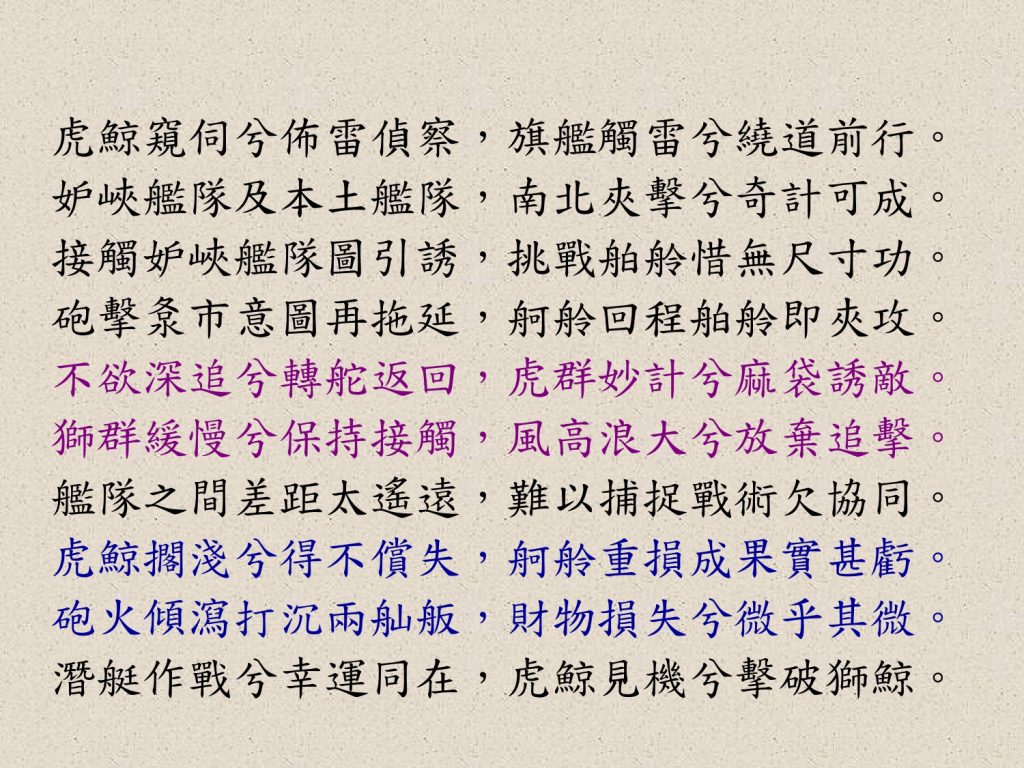 虎鯨窺伺兮佈雷偵察，旗艦觸雷兮繞道前行。
妒峽艦隊及本土艦隊，南北夾擊兮奇計可成。
接觸妒峽艦隊圖引誘，挑戰舶舲惜無尺寸功。
砲擊滧市意圖再拖延，舸舲回程舶舲即夾攻。
不欲深追兮轉舵返回，虎群妙計兮麻袋誘敵。
獅群緩慢兮保持接觸，風高浪大兮放棄追擊。
艦隊之間差距太遙遠，難以捕捉戰術欠協同。
虎鯨擱淺兮得不償失，舸舲重損成果實甚虧。
砲火傾瀉打沉兩舢舨，財物損失兮微乎其微。
潛艇作戰兮幸運同在，虎鯨見機兮擊破獅鯨。